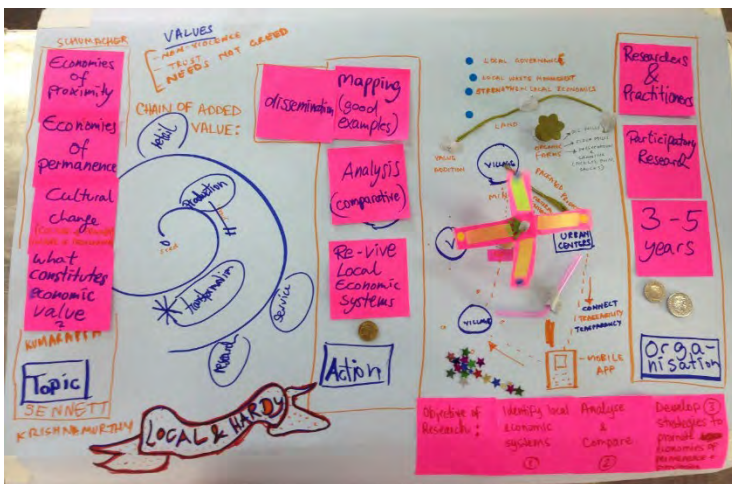 SCHUMACHER
Economies
of
proximity
Economies
of
permanence
Cultural
change
what
constitutes
economic
value
?
KUMARAPPA
Topic
SENNETT
KRISHNAMURTHY
VALUES
NON-VIOLENCE
TRUST
NEEDS NOT GREED
CHAIN OF ADDED
VALUE:
retail
Production
Seed
Transformation
service
research
LOCAL & HARDY
dissemination
Mapping
(good
examples)
Analysis
(comparative)
Re-vive
Local
Economic
Systems
Action
LOCAL GOVERNANCE
LOCAL WASTE MANAGEMENT
STRENGTHEN LOCAL ECONOMICS
LAND
VALUE
ADDITION
ORGANIC
FARMS
VILLAGE
V
URBAN
CENTERS
VILLAGE
CONNECT
TRACEABILITY
TRANPARANCY
MOBILE
APP
Researchers
&
Practitioners
Participatory
Research
3-5
years
Orga-
nisation
Objective of
Research:
Identify local
economic
systems
1
Analyse
&
Compare
2
Develop 3
strategies to
promote
economies of
permanence +